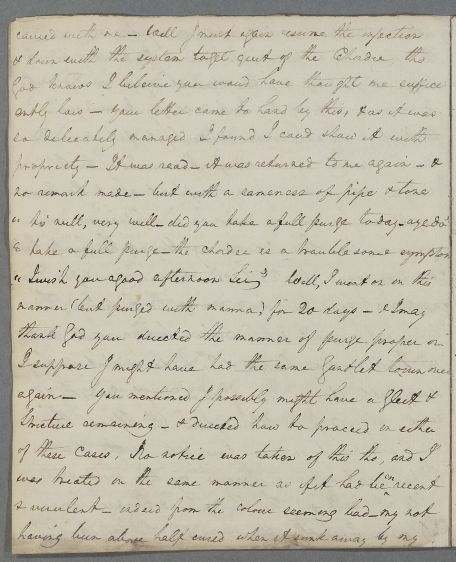 carried with me – Well I must again resume the injection
& down with the system to get quit of the Chordee, tho
God knows I believe you would have thought me suffici
ently low – your letter came to hand by this, & as it was
so delicately managed I found I coud show it with
propriety – It was read – it was returned to me again – &
no remark made – but with a sameness of pipe & tone
very well – did you take a full purge today – aye do
take a full purge – the chordee is a troublesome symptom
I wish you a good afternoon Sir" Well, I went on in this
manner (but purged with manna) for 20 days – & I may
thank God you directed the manner of purge proper or
I suppose I might have had the same Gantlet to run over
again – You mentioned I possibly might have a Gleet &
Stricture remaining – & directed how to proceed in either
of these cases. No notice was taken of this tho, and I
was treated in the same manner as if it had been recent
& virulent – indeed from the colour seeming bad – my not
having been above half cured when it sunk away by my